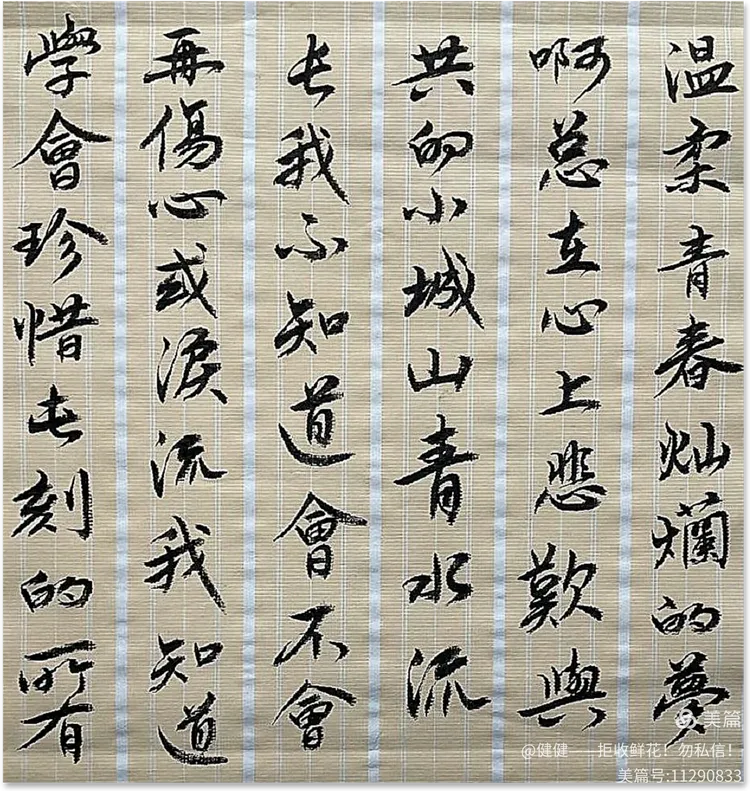 温柔青春灿爛的夢
啊总在心上悲歎與
共的小城山青水流
长我不知道會不會
再傷心或淚流我知道
學會珍惜此刻的所有
美篇
@健健——拒收鲜花！勿私信！
美篇号:11290833